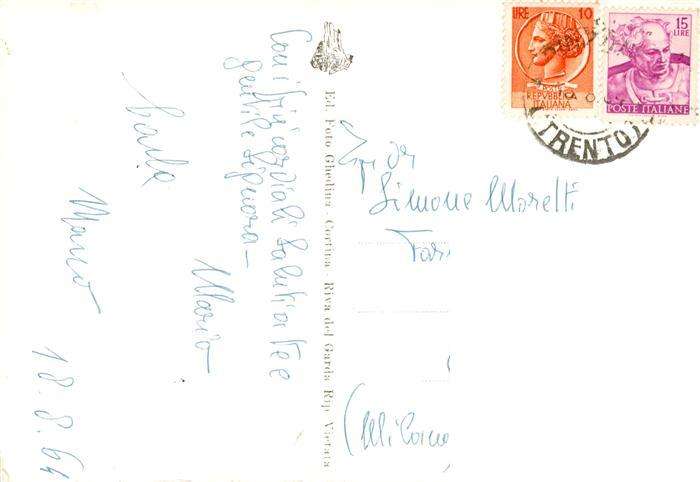 Con i più cordiali saluti a Lei e
gentile Signora -
Mario
Carla
Marco
18.8.64
Ed. Foto Ghedina - Cortina - Riva del Garda Rip. Vietata
LIRE 10
POSTE
REPVBBLICA
ITALIANA
15
LIRE
POSTE ITALIANE
TRENTO
Simone Moretti
(Milano